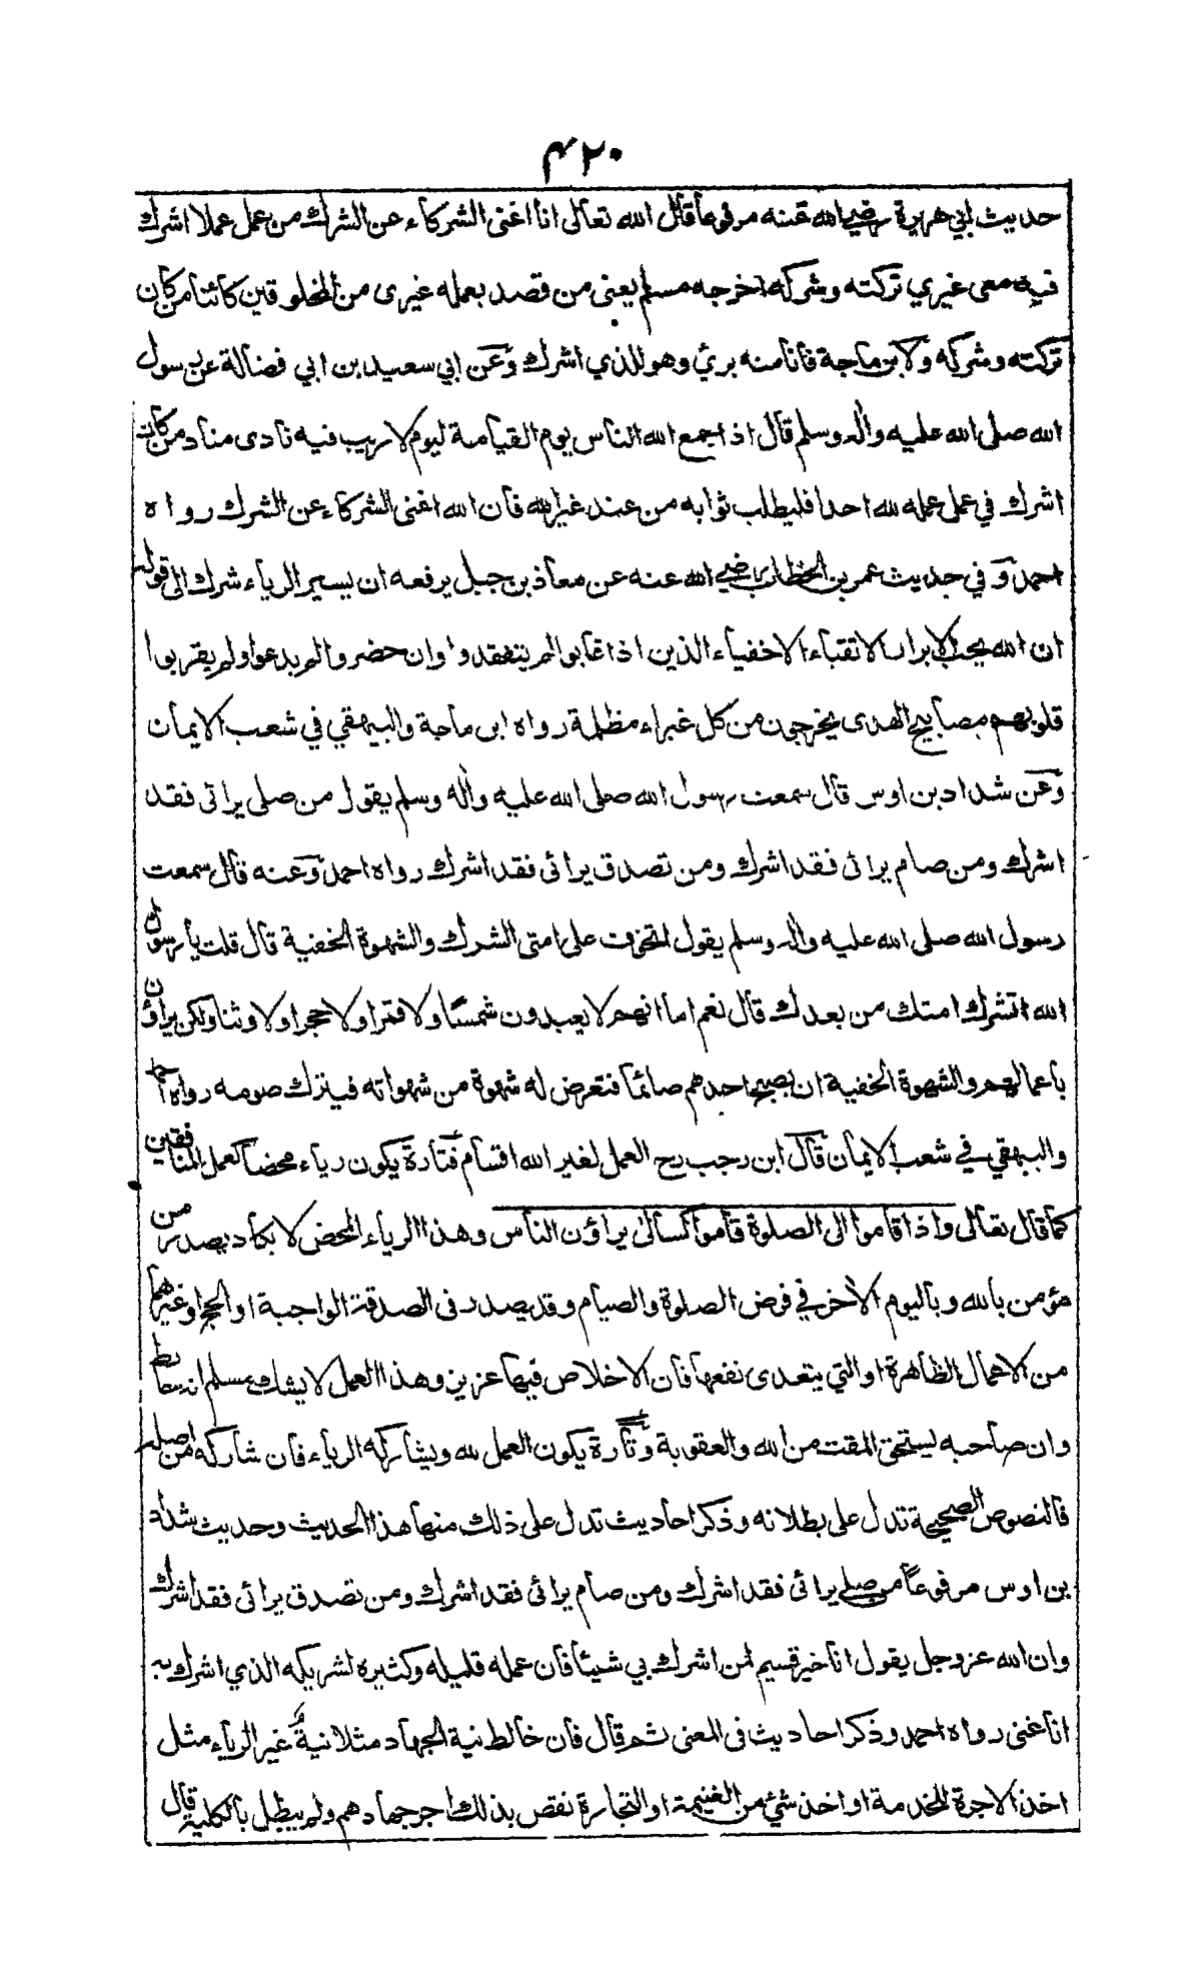 ۴۲۰
حديث ابي هريرة رضي الله عنه مرفوعا قال الله تعالى انا اغنى الشركاء عن الشرك من عمل عملا اشرك
فيه معي غيري تركته وشركه اخرجه مسلم يعني من قصد بعمله غيرى من المخلوقين كائنا من كان
تركته وشركه ولابن ماجة فانا منه برئ وهو للذي اشرك وعن ابي سعيد بن ابي فضالة عن رسول
الله صلى الله عليه واله وسلم قال اذا جمع الله الناس يوم القيامة ليوم لا ريب فيه نادى مناد من كان
اشرك في عمل عمله لله احدا فليطلب ثوابه من عند غير الله فان الله اغنى الشركاء عن الشرك رواه
احمد و في حديث عمر بن الخطاب رضي الله عنه عن معاذ بن جبل يرفعه ان يسير الرياء شرك الى قوله
ان الله يحب الابرار الاتقياء الاخفياء الذين اذا غابوا لم يتفقدوا وان حضروا لم يدعوا ولم يقربوا
قلوبهم مصابيح الهدى يخرجون من كل غبراء مظلمة رواه ابن ماجة والبيهقي في شعب الايمان
وعن شداد بن اوس قال سمعت رسول الله صلى الله عليه واله وسلم يقول من صلى يرائى فقد
اشرك ومن صام يرائى فقد اشرك ومن تصدق يرائى فقد اشرك رواه احمد وعنه قال سمعت
رسول الله صلى الله عليه واله وسلم يقول اتخوف على امتى الشرك والشهوة الخفية قال قلت يا رسول
الله اتشرك امتك من بعدك قال نعم اما انهم لا يعبدون شمسا ولا قمرا ولا حجرا ولا وثنا ولكن يراؤن
باعمالهم والشهوة الخفية ان يصبح احدهم صائما فتعرض له شهوة من شهواته فيترك صومه رواه احمد
والبيهقي في شعب الايمان قال ابن رجب رح العمل لغير الله اقسام فتارة يكون رياء محضا كعمل المنافقين
كما قال تعالى واذا قاموا الى الصلوة قاموا كسالى يراؤن الناس وهذا الرياء المحض لا يكاد يصدر من
مؤمن بالله وباليوم الاخر في فرض الصلوة والصيام وقد يصدر فى الصدقة الواجبة او الحج او غيرهما
من الاعمال الظاهرة او التي يتعدى نفعها فان الاخلاص فيها عزيز وهذا العمل لا يشك مسلم انه حابط
وان صاحبه يستحق المقت من الله والعقوبة وتارة يكون العمل لله ويشاركه الرياء فان شاركه من اصله
فالنصوص الصحيحة تدل على بطلانه وذكر احاديث تدل على ذلك منها هذا الحديث وحديث شداد
بن اوس مرفوعا من صلى يرائى فقد اشرك ومن صام يرائى فقد اشرك ومن تصدق يرائى فقد اشرك
وان الله عزوجل يقول انا خير قسيم لمن اشرك بي شيئا فان عمله قليله وكثيره لشريكه الذي اشرك به
انا غنى رواه احمد وذكر احاديث فى المعنى ثم قال فان خالط نية الجهاد مثلا نية غير الرياء مثل
اخذ الاجرة للخدمة او اخذ شئ من الغنيمة او التجارة نقص بذلك اجر جهادهم ولم يبطل بالكلية قال